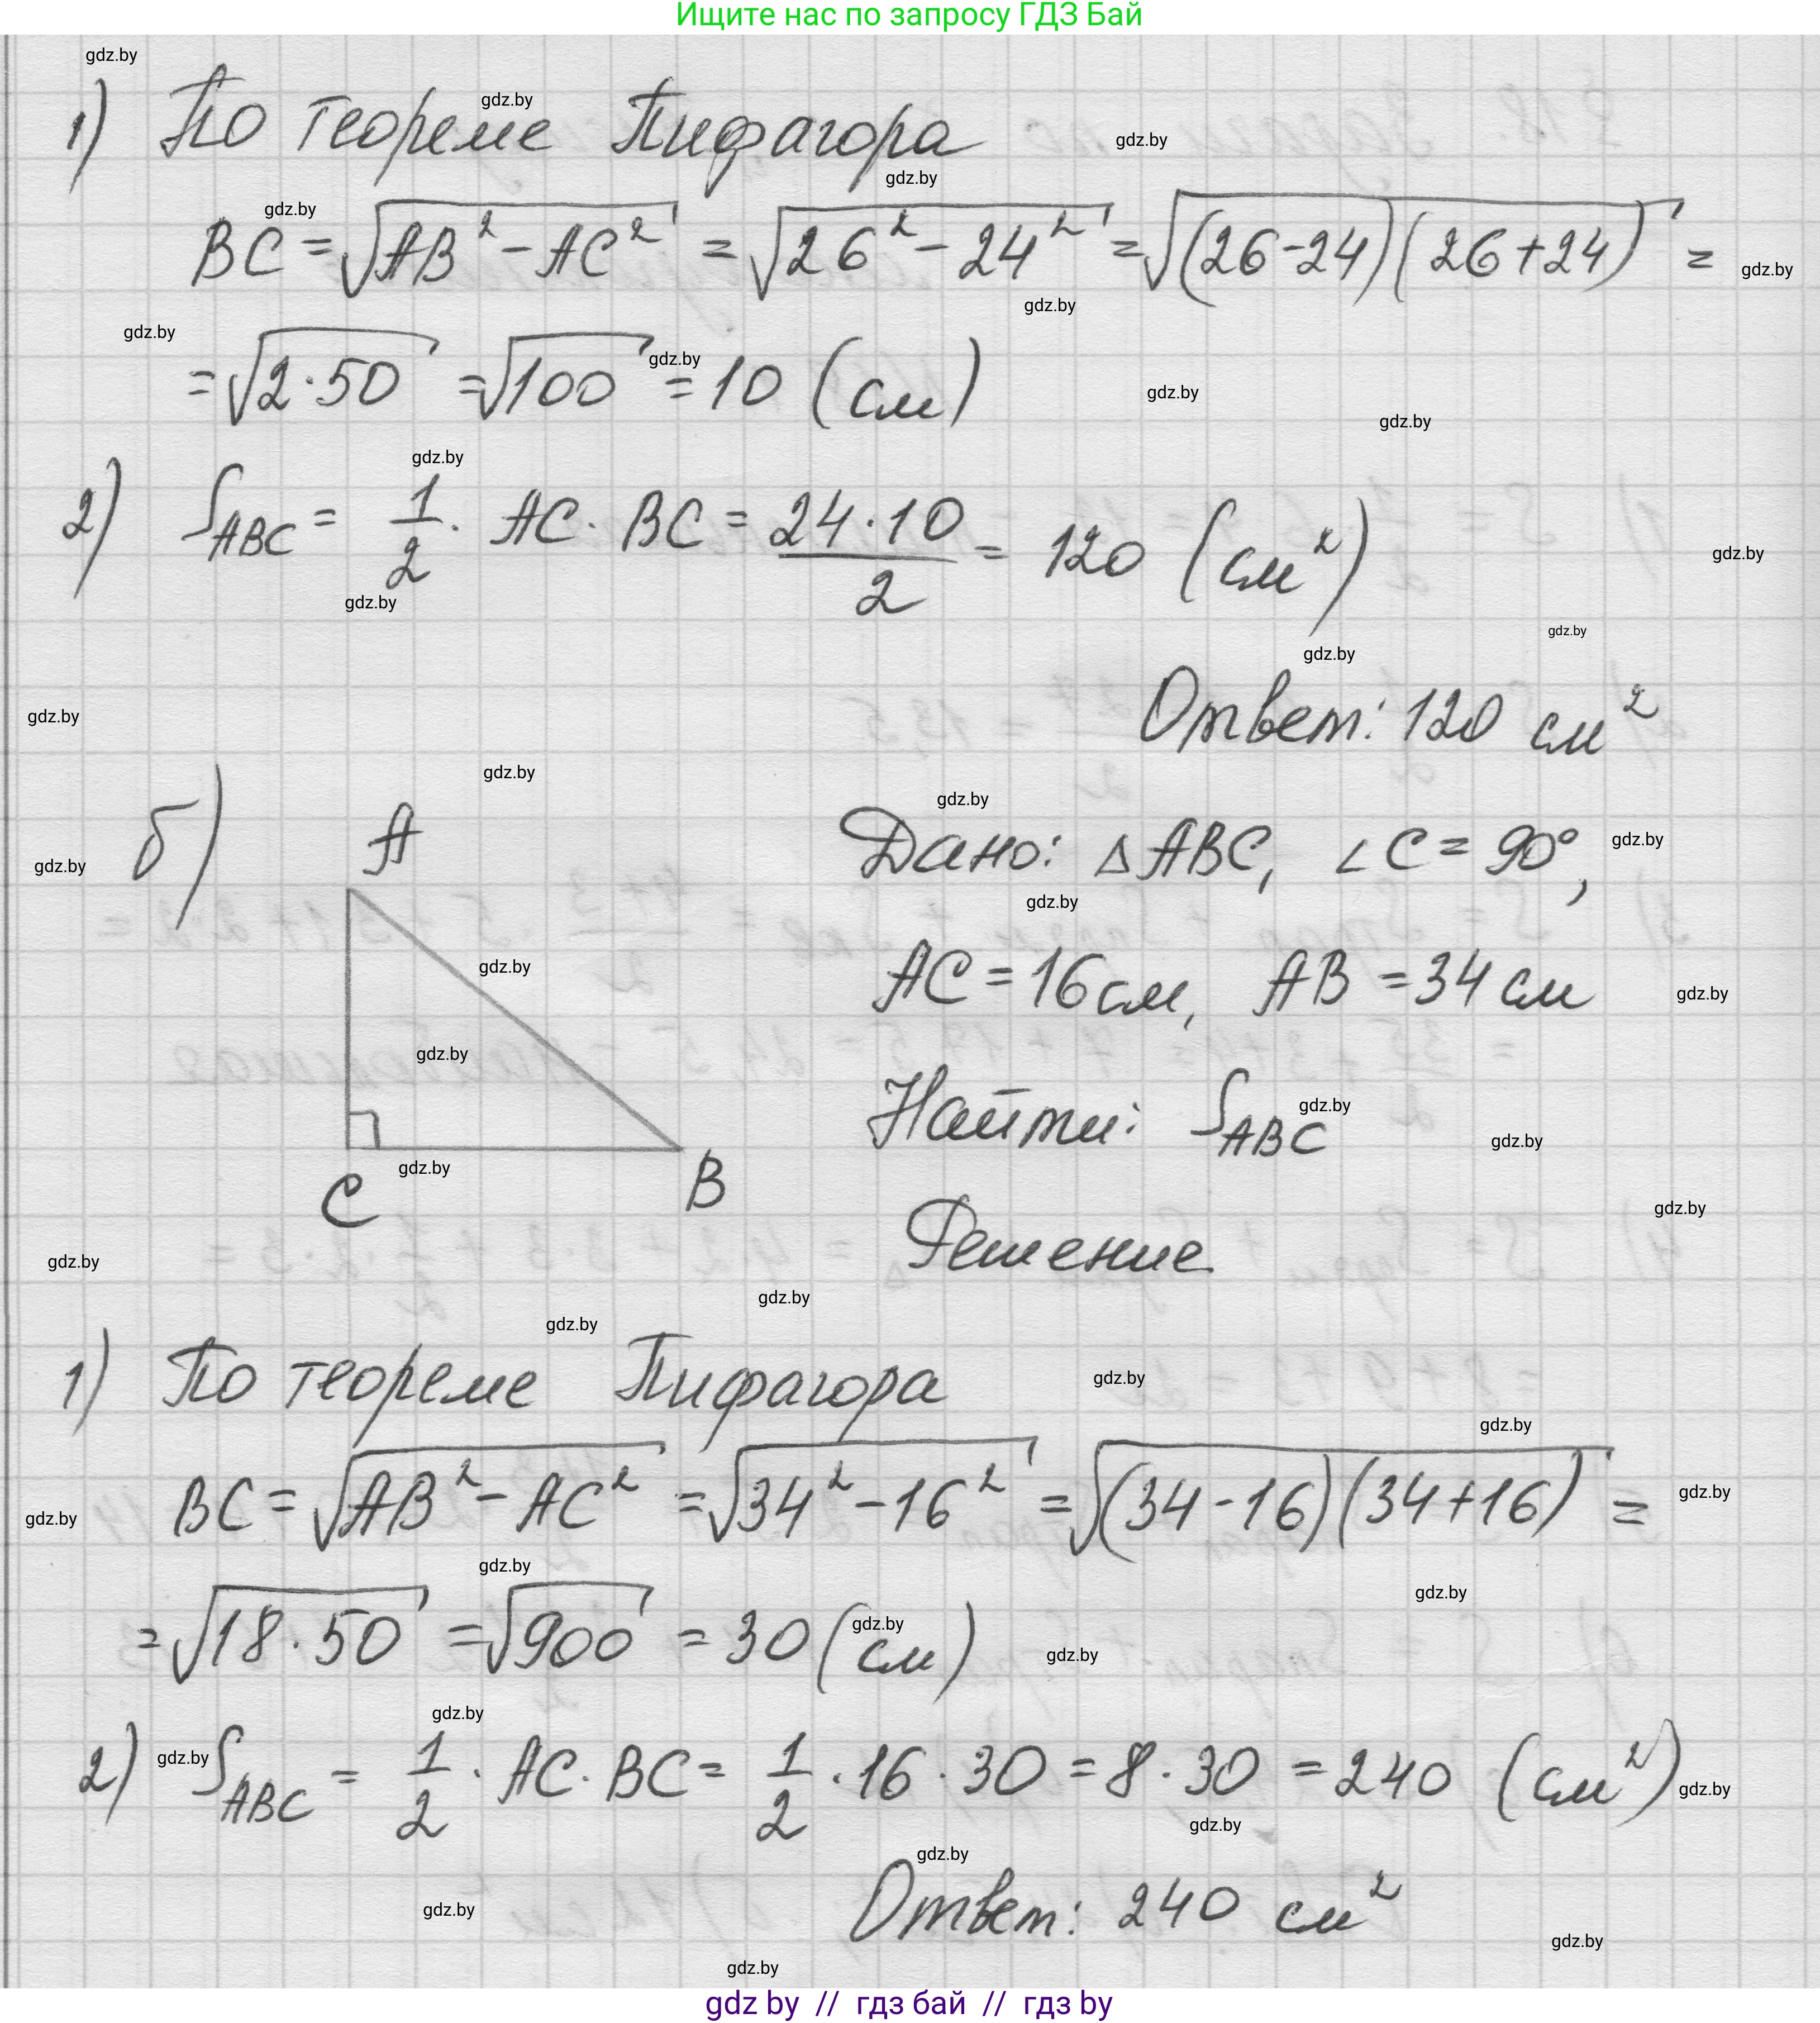 Ищите нас по запросу ГДЗ Бай
gdz.by
1) По теореме Пифагора
BC = √(AB² - AC²) = √(26² - 24²) = √((26-24)(26+24)) =
= √(2·50) = √100 = 10 (см)
2) S_ABC = 1/2 · AC · BC = 24·10/2 = 120 (см²)
Ответ: 120 см²
б)
A
C
B
Дано: △ABC, ∠C = 90°,
AC = 16 см, AB = 34 см
Найти: S_ABC
Решение
1) По теореме Пифагора
BC = √(AB² - AC²) = √(34² - 16²) = √((34-16)(34+16)) =
= √(18·50) = √900 = 30 (см)
2) S_ABC = 1/2 · AC · BC = 1/2 · 16 · 30 = 8 · 30 = 240 (см²)
Ответ: 240 см²
gdz by // гдз бай // гдз by